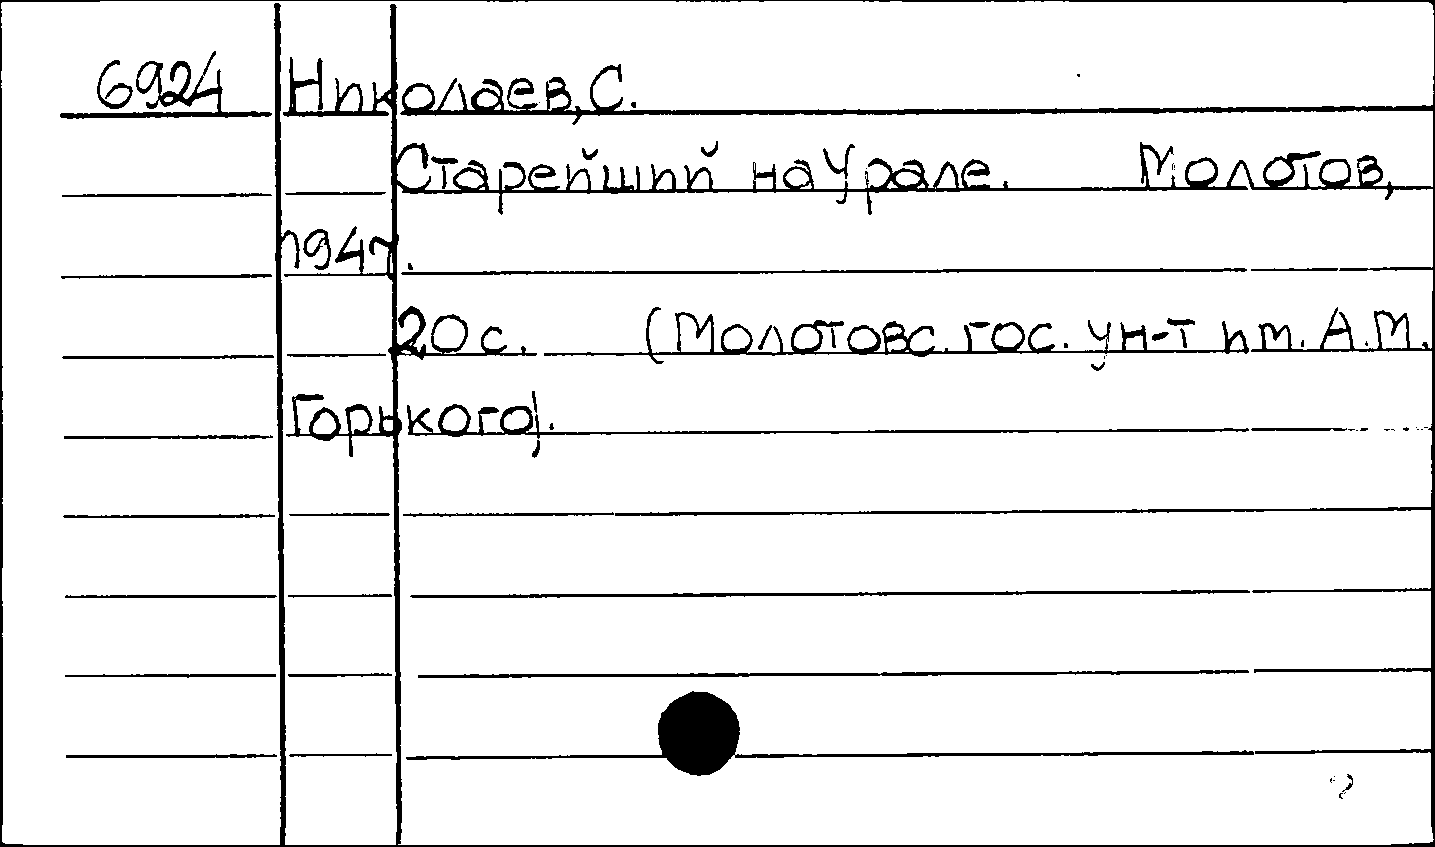 6924 Николаев, С.
Старейший на Урале. Молотов,
1947.
20 с. (Молотовс. гос. ун-т им. А.М.
Горького).